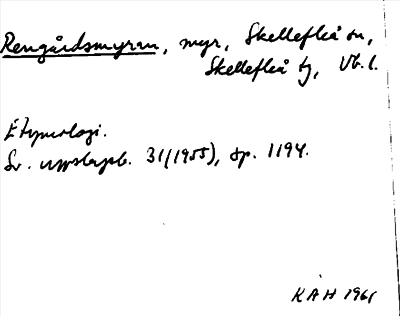 Rengårdsmyran, myr, Skellefteå sn,
Skellefteå tg, Vb. l.
Etymologi.
Sv. uppslagsb. 31 (1955), sp. 1194.
KAH 1961